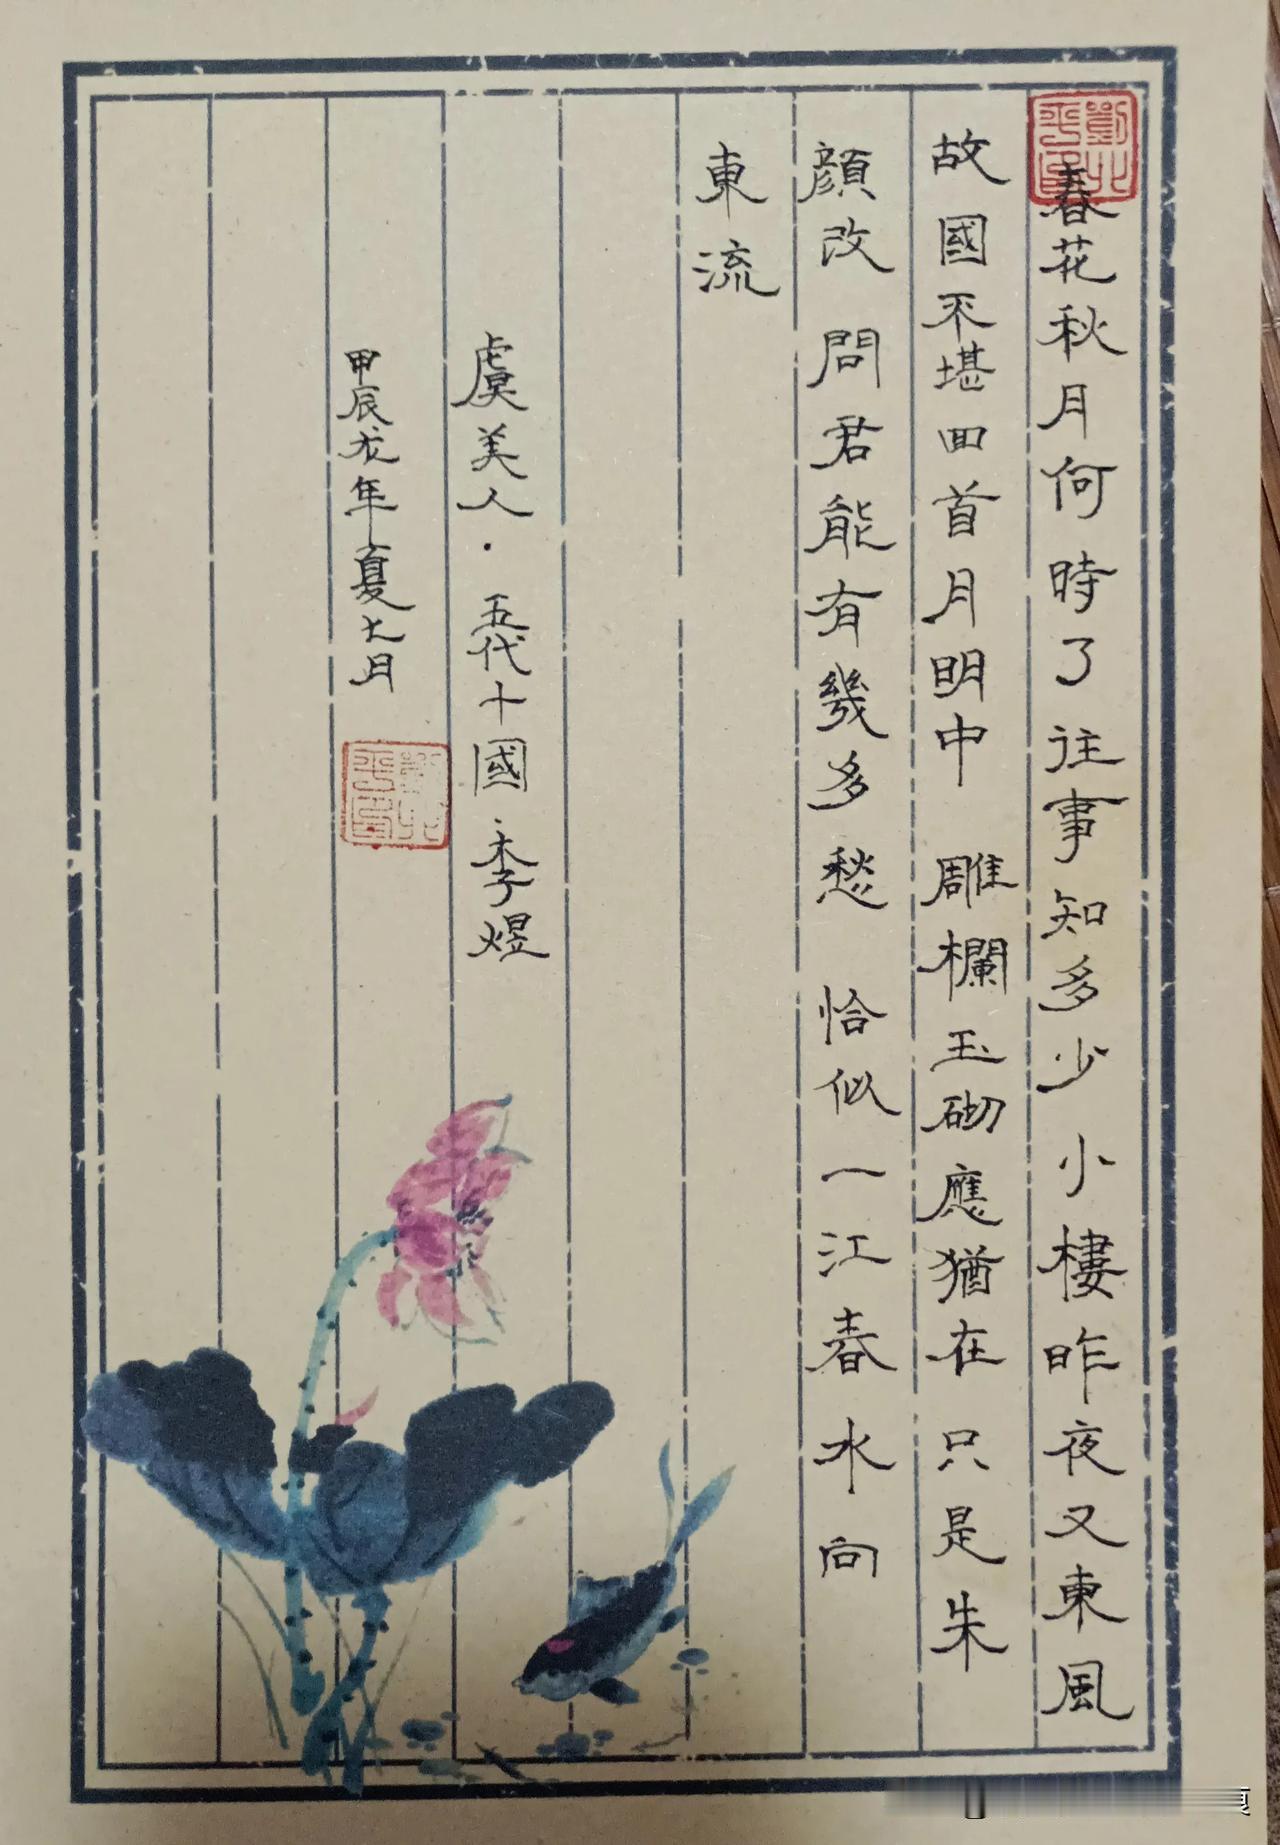 春花秋月何時了往事知多少 小樓昨夜又東風
故國不堪回首月明中 雕欄玉砌應猶在 只是朱
顏改 問君能有幾多愁 恰似一江春水向
東流
虞美人·五代十國·李煜
甲辰龙年夏七月